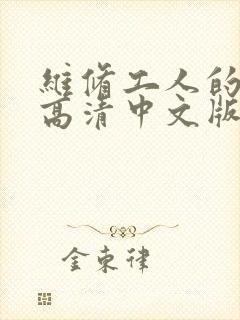 維修工人的
高清中文版
金東律